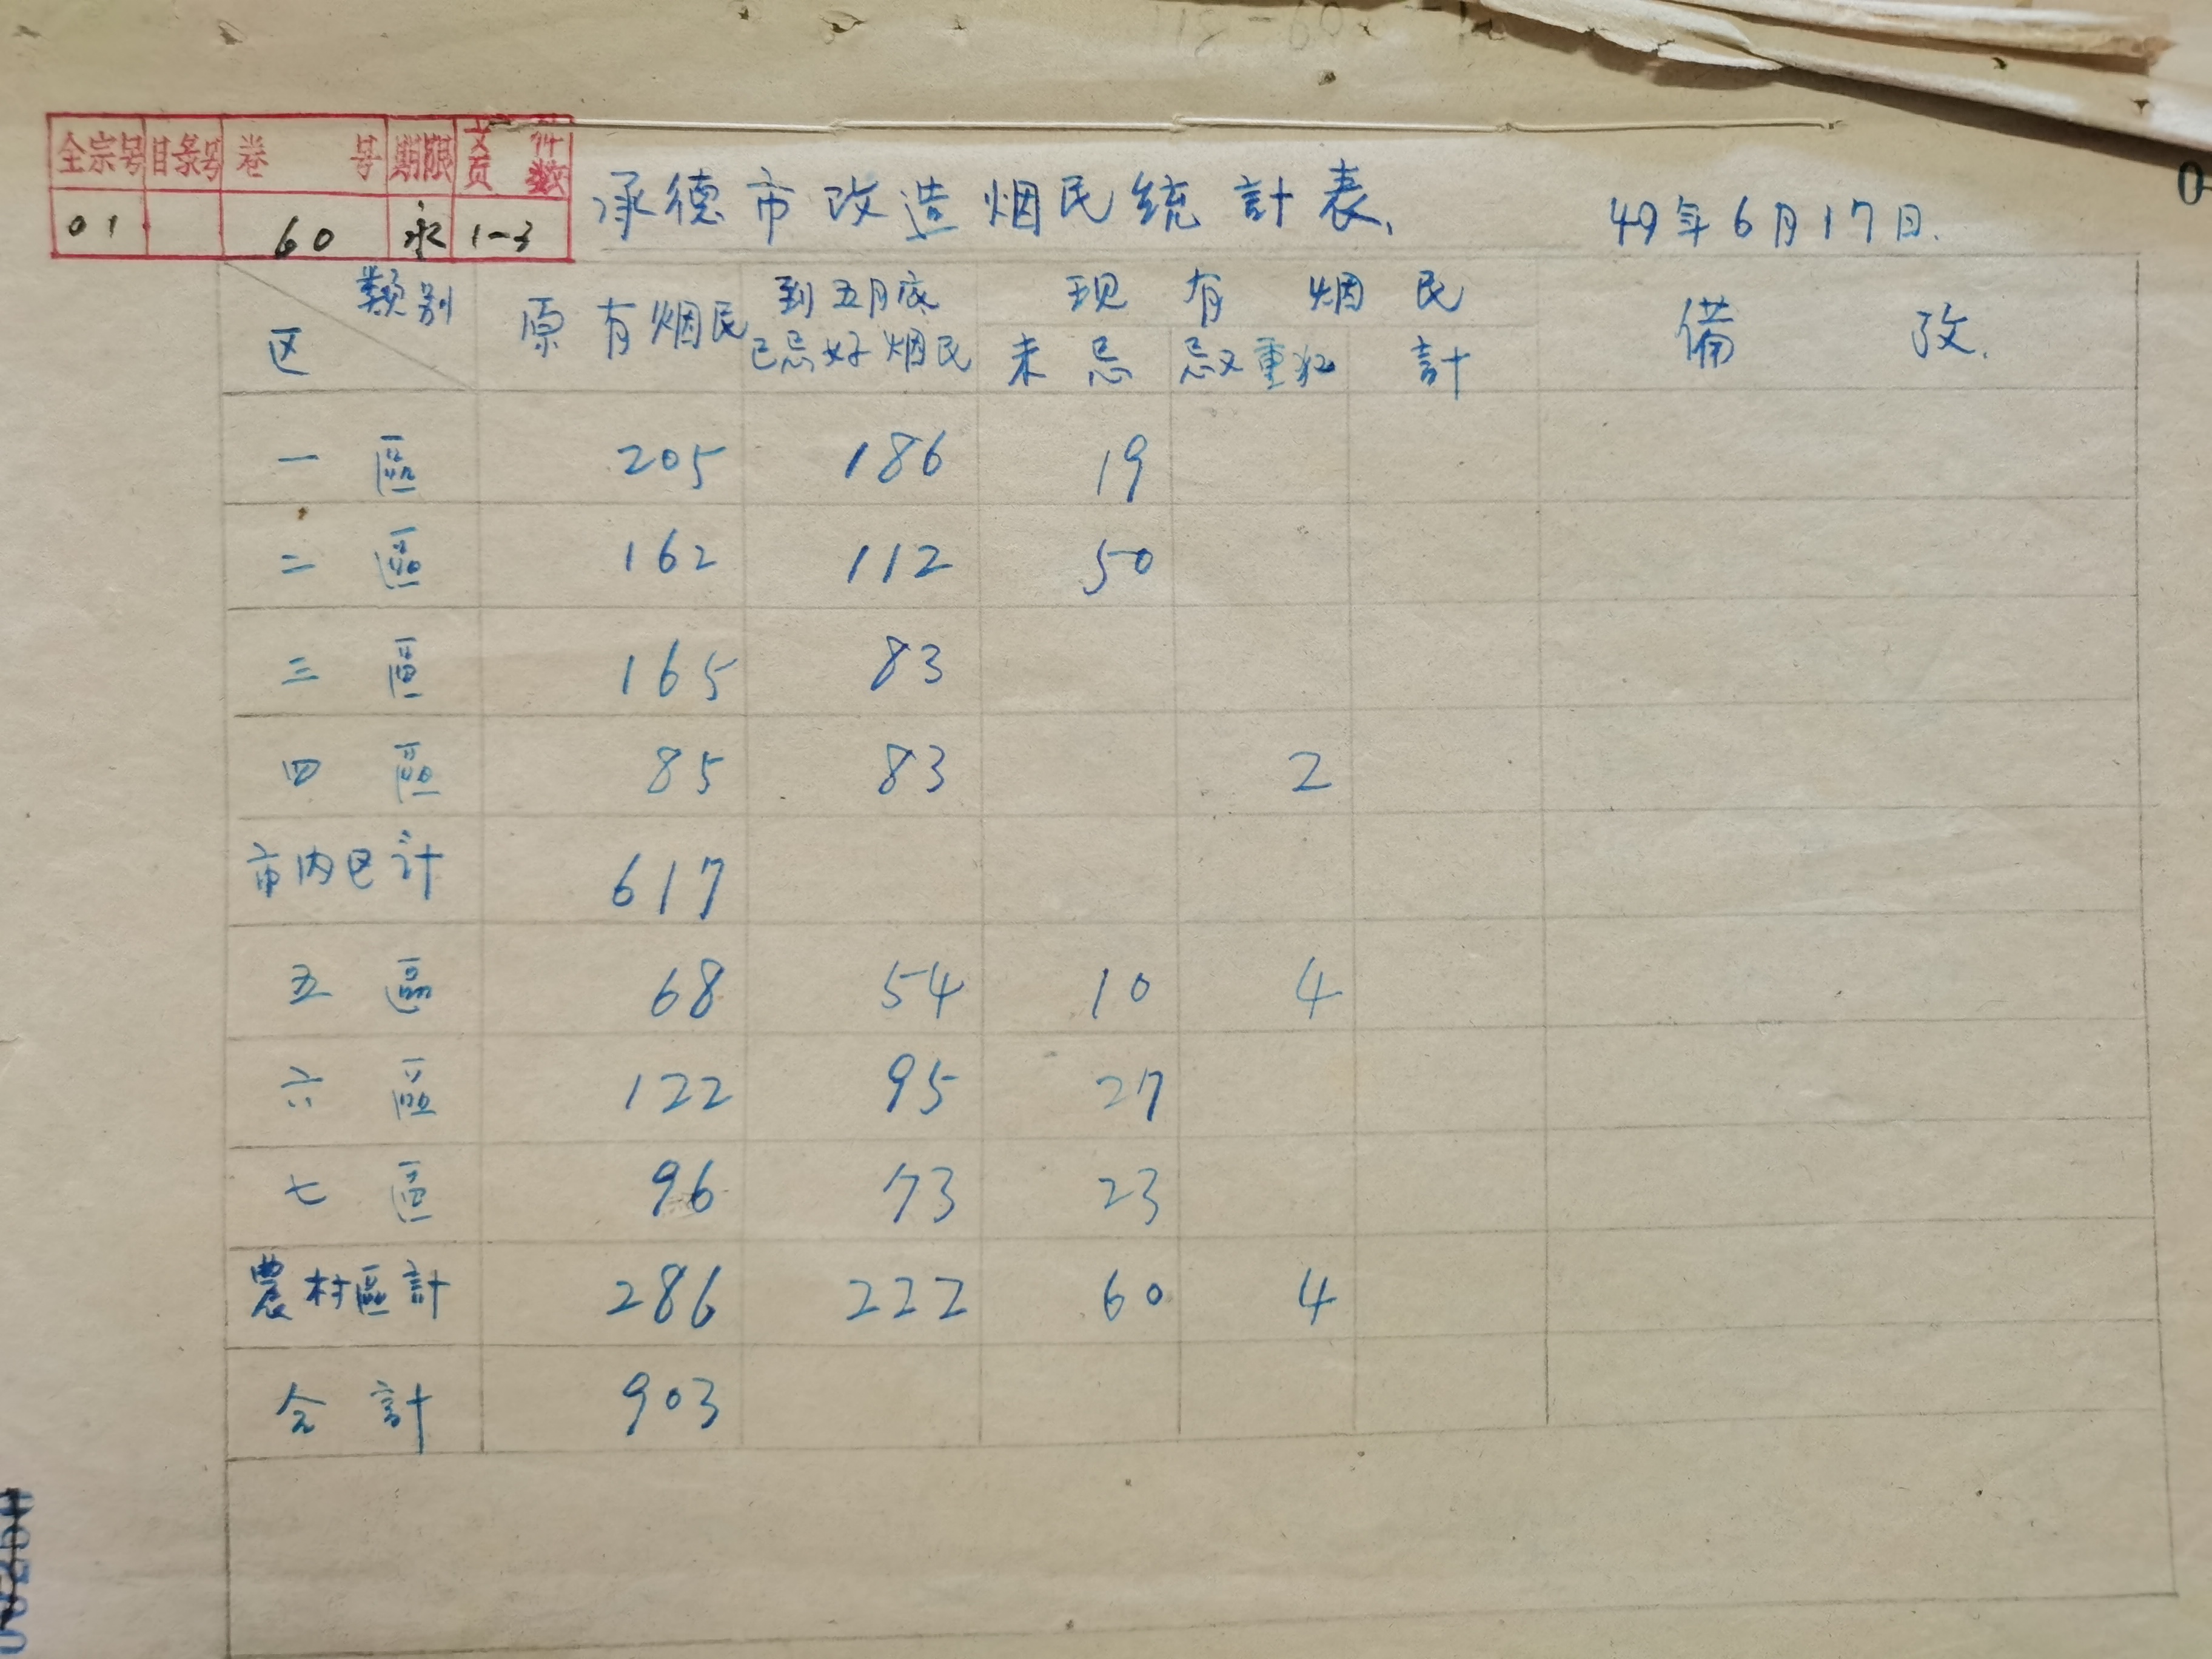 全宗号 目录号 卷号 期限 文件页数
01 60 永 1-3
承德市改造烟民統計表.
49年6月17日.
類别 区 原有烟民 到五月底已忌好烟民 现有烟民 備攷.
未忌 忌又重犯 計
一區 205 186 19
二區 162 112 50
三區 165 83
四區 85 83 2
市内区计 617
五區 68 54 10 4
六區 122 95 27
七區 96 73 23
農村區計 286 222 60 4
合計 903